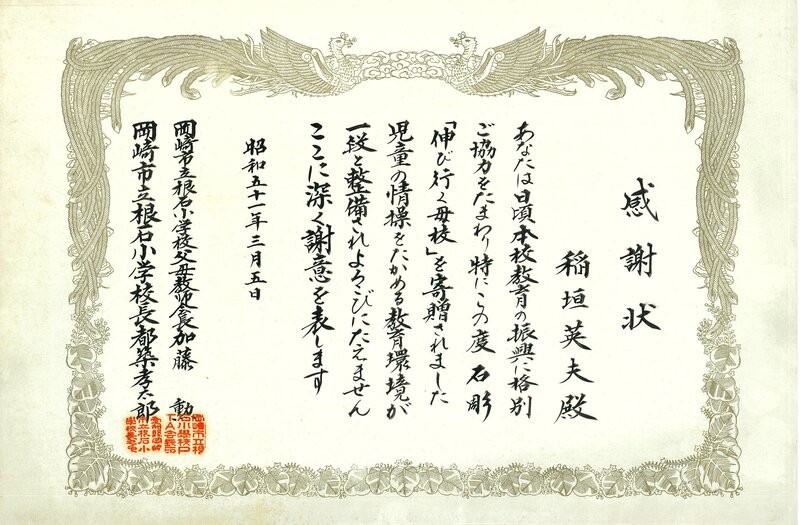 感謝状
稲垣英夫殿
あなたは日頃本校教育の振興に格別
ご協力をたまわり特にこの度石彫
「伸び行く母校」を寄贈されました
児童の情操をたかめる教育環境が
一段と整備されよろこびにたえません
ここに深く謝意を表します
昭和五十一年三月五日
岡崎市立根石小学校父母教師会長加藤 勲
岡崎市立根石小学校長都築孝太郎